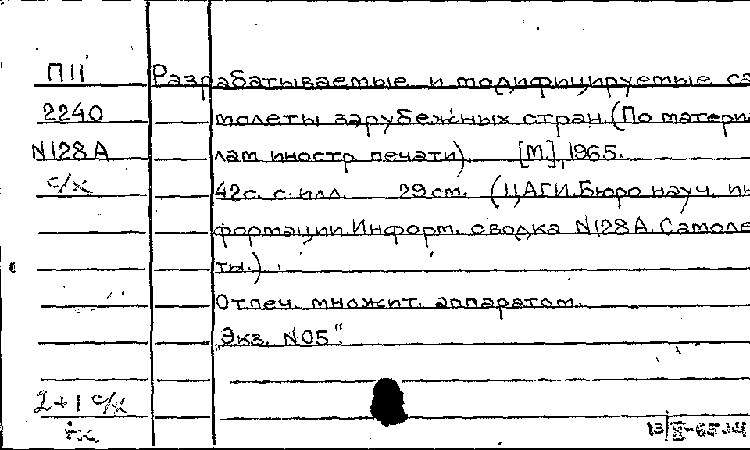 П11
2240
N128А
с/х
Разрабатываемые и модифицируемые са
молеты зарубежных стран. (По материа
лам иностр печати). [М], 1965.
42с. с илл. 29 см. (ЦАГИ. Бюро науч. ин
формации. Информ. сводка N128А. Самоле
ты.)
Отпеч. множит. аппаратом.
Экз. N05".
2+1 с/х